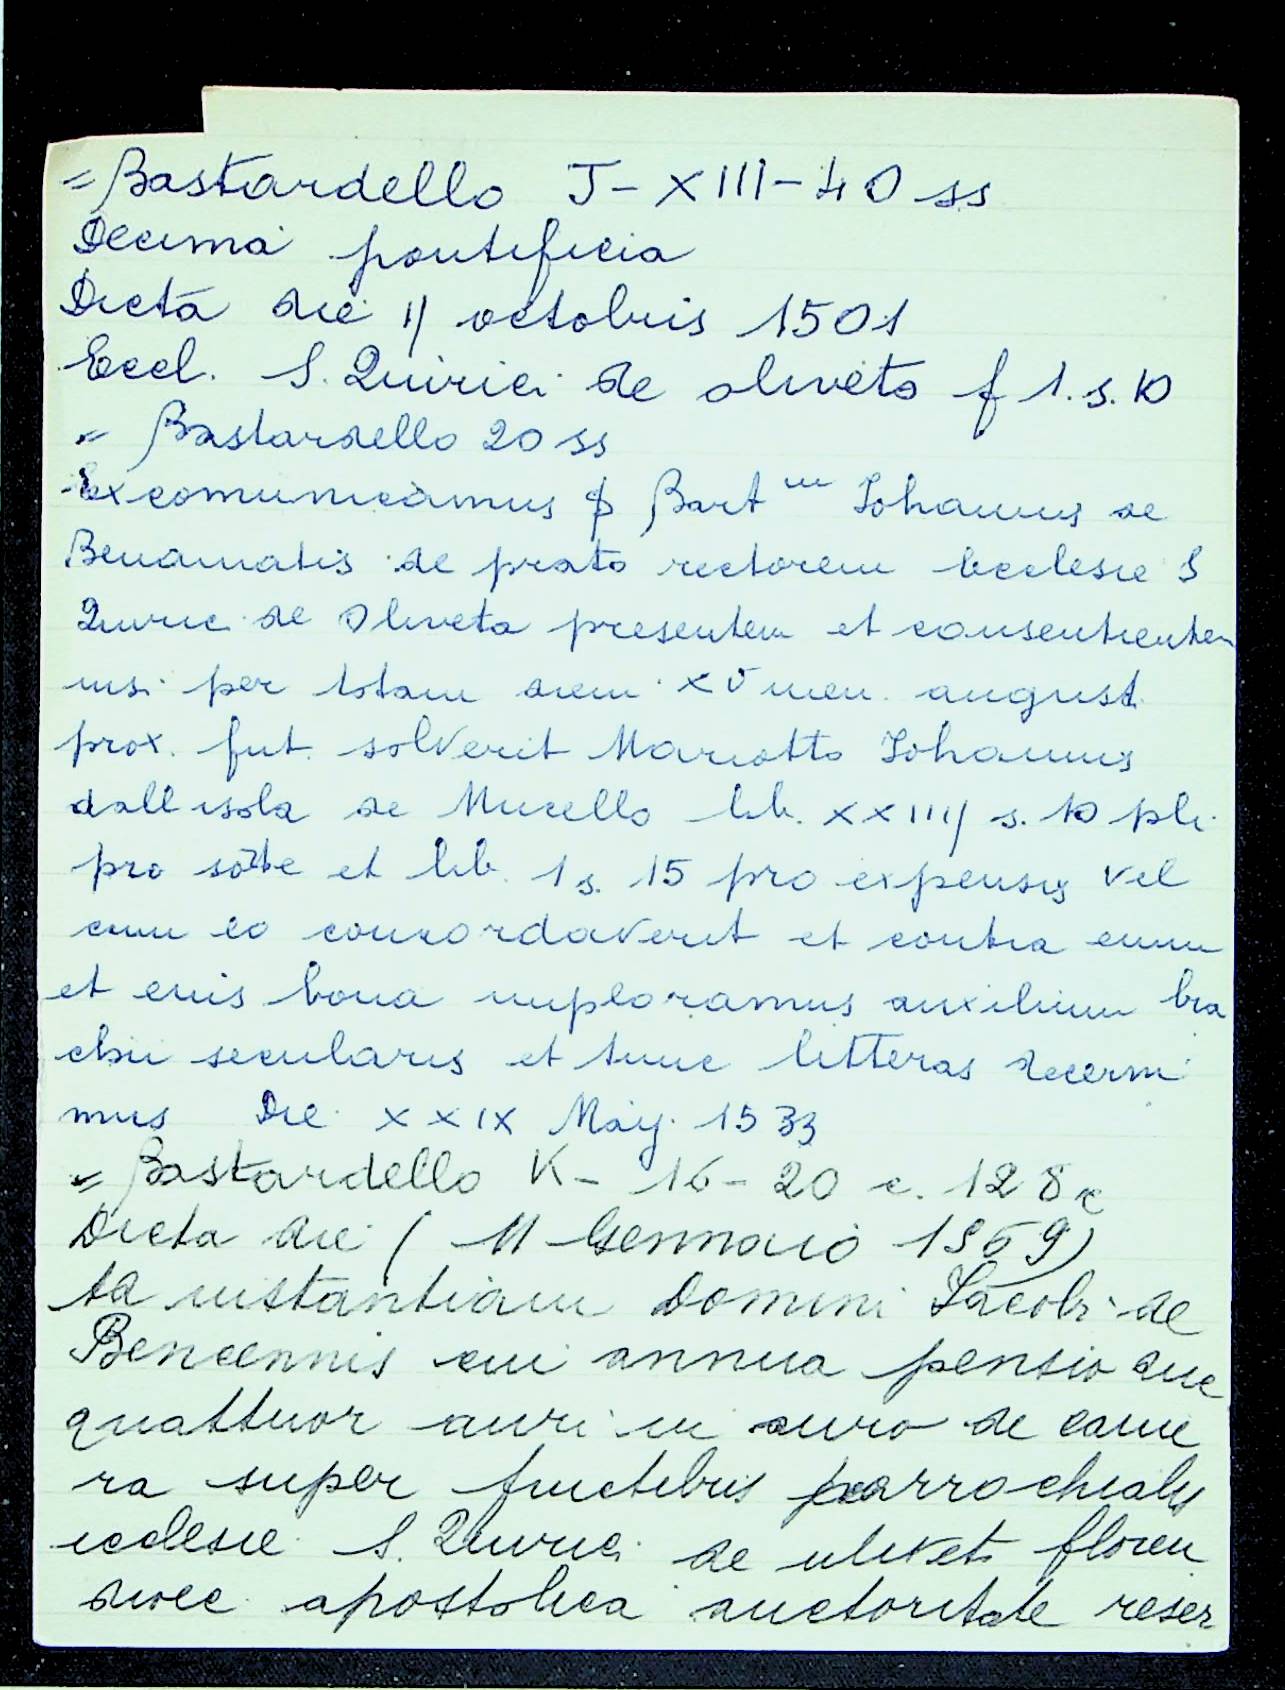 = Bastardello J - XIII - 40 ss
Decima pontificia
Dicta die 11 octobris 1501
Eccl. S. Quirici de oliveto f 1. s. 10
= Bastardello 20 ss
Excomunicamus Bart Iohannis de
Benamatis de prato rectorem ecclesie S
Quirici de Oliveto presentem et consentientem
nisi per totam diem XV men. august.
prox. fut. solverit Mariotto Iohannis
dall isola de Mucello lib. XXIIIJ s. 10 pli
pro sorte et lib. 1 s. 15 pro expensis vel
cum eo concordaverit et contra eum
et eius bona imploramus auxilium bra
chii secularis et tunc litteras decerni
mus Die XXIX Maij. 1533
= Bastardello K - 16 - 20 c. 128 r
Dicta die ( 11 Gennaio 1569)
Ad instantiam Domini Iacobi de
Bencennis cui annua pensio duc
quattuor auri in auro de came
ra super fructibus parrochialis
ecclesie S. Quirici de ulivet. floren
dioec. apostolica auctoritate reser